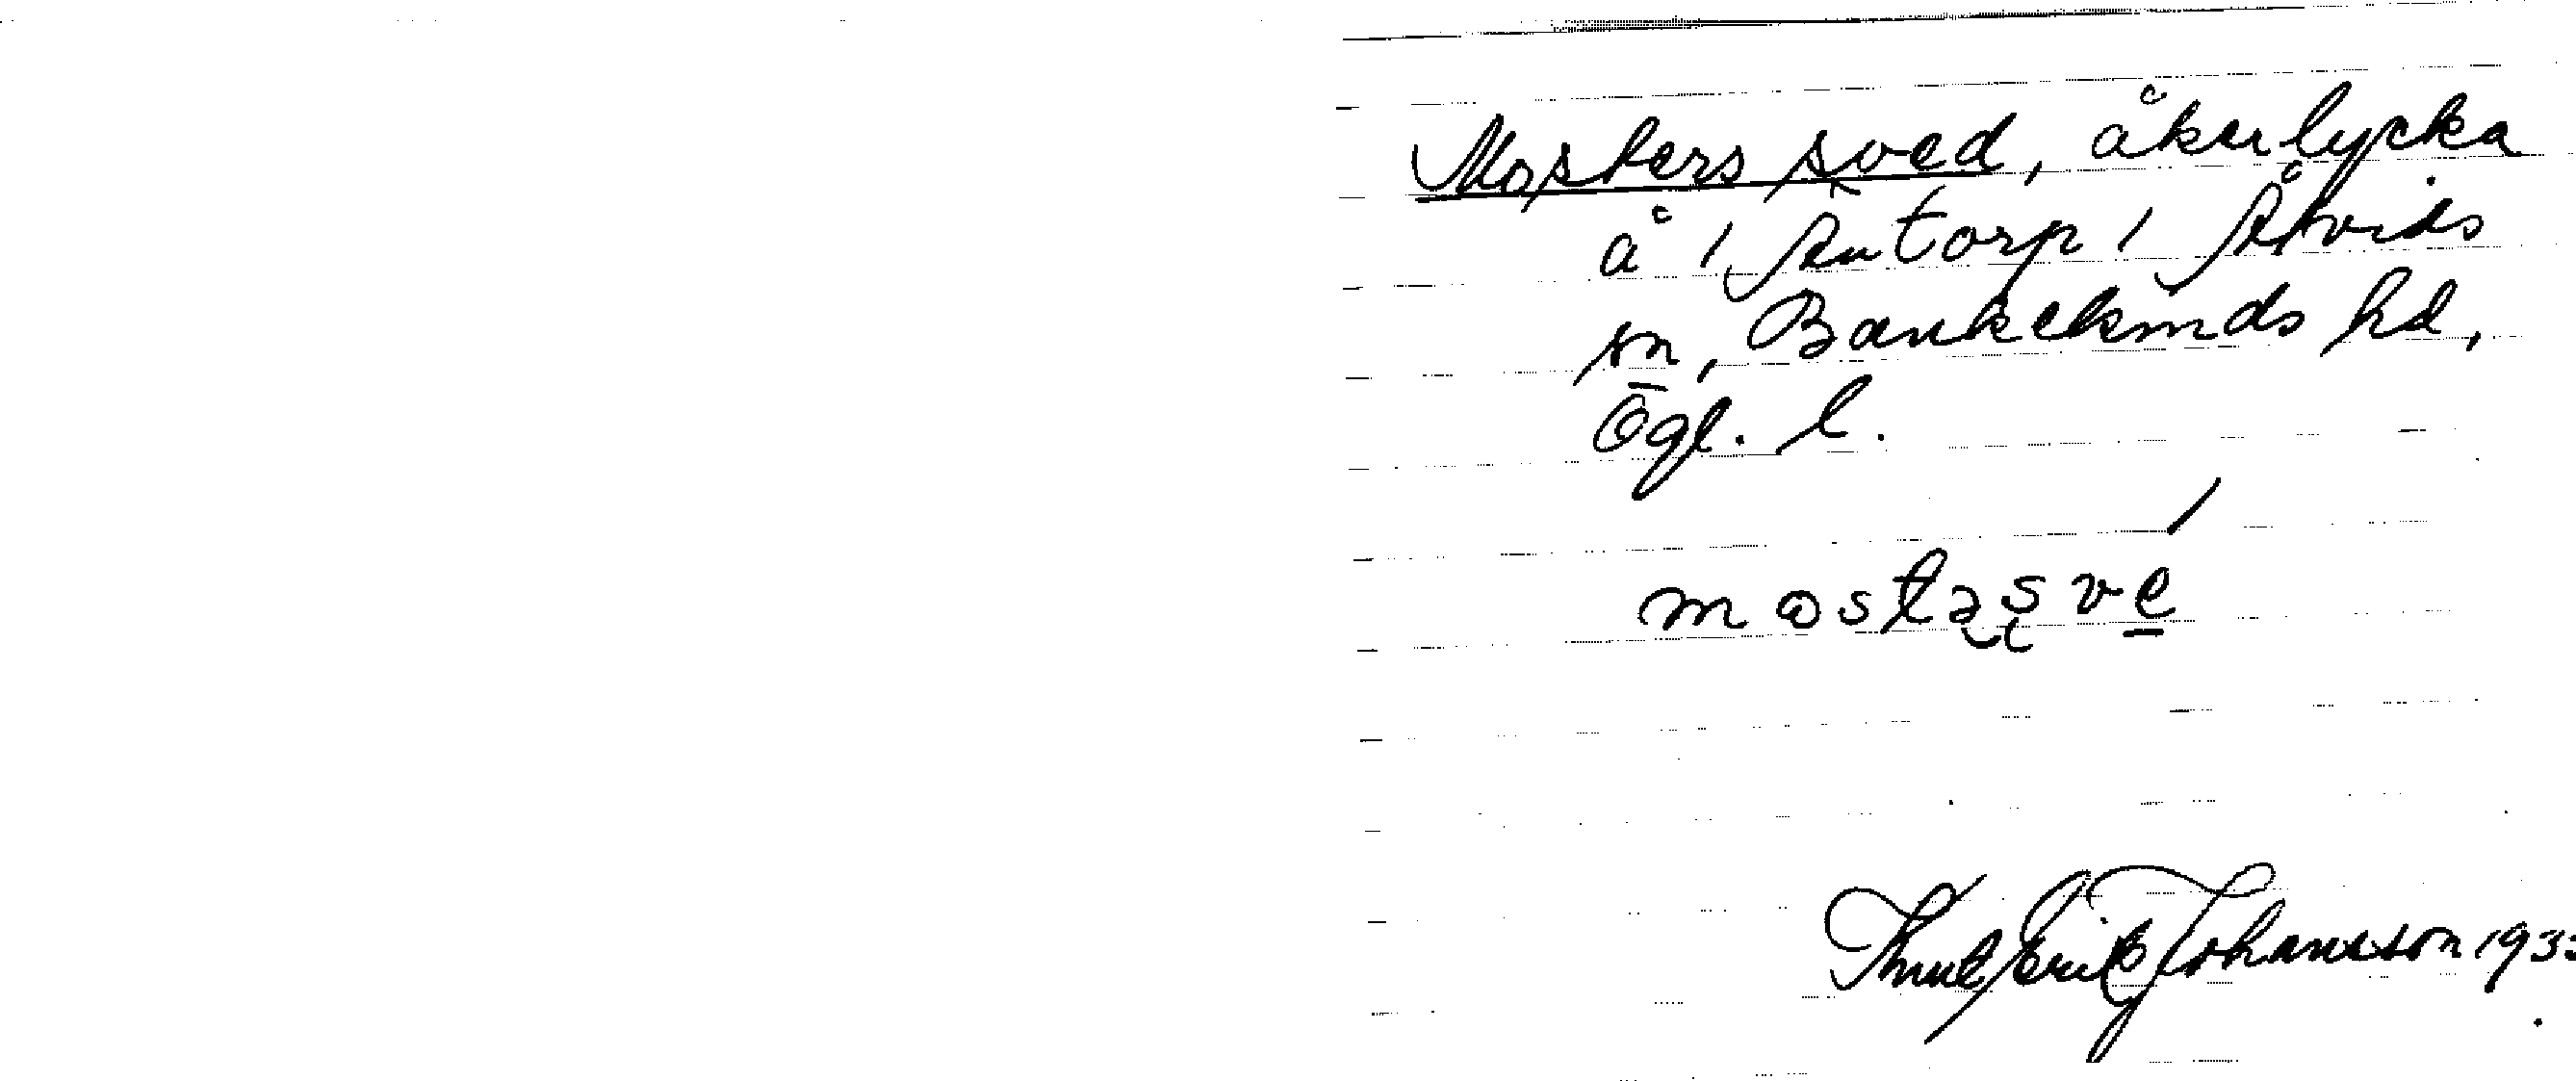 Mosters sved, åkerlycka
å 1 Äntorp 1 Åtvids
sn, Bankekinds hd,
Ögl. l.
mostəsve
Knut Erik Johansson 1933